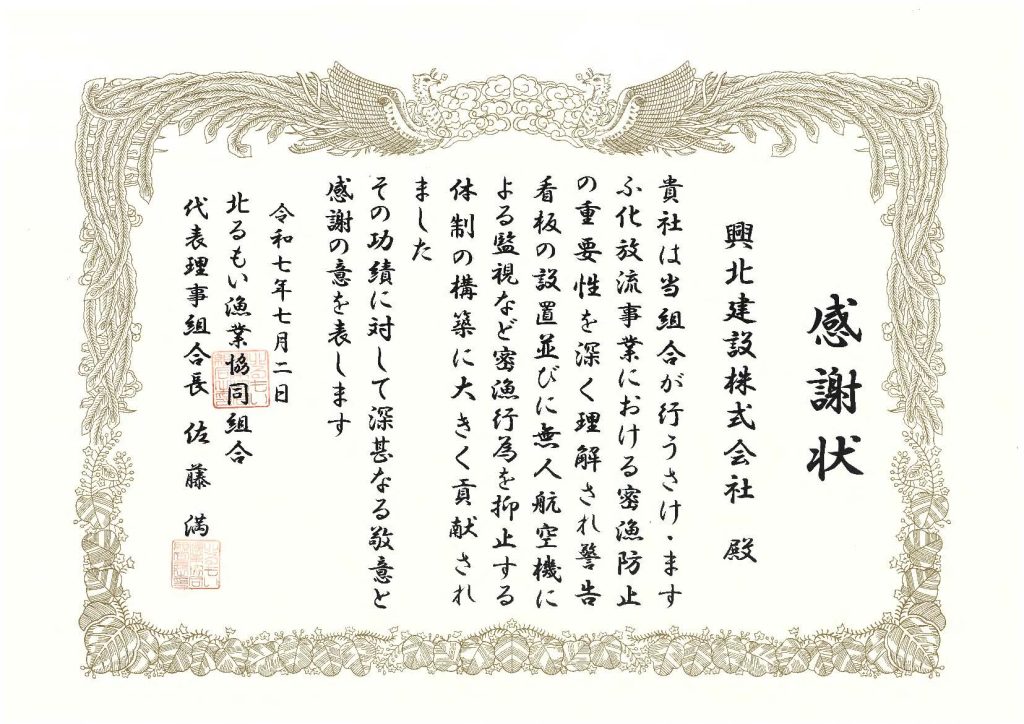 感謝状
興北建設株式会社 殿
貴社は当組合が行うさけ・ます
ふ化放流事業における密漁防止
の重要性を深く理解され警告
看板の設置並びに無人航空機に
よる監視など密漁行為を抑止する
体制の構築に大きく貢献され
ました
その功績に対して深甚なる敬意と
感謝の意を表します
令和七年七月二日
北るもい漁業協同組合
代表理事組合長 佐藤 満